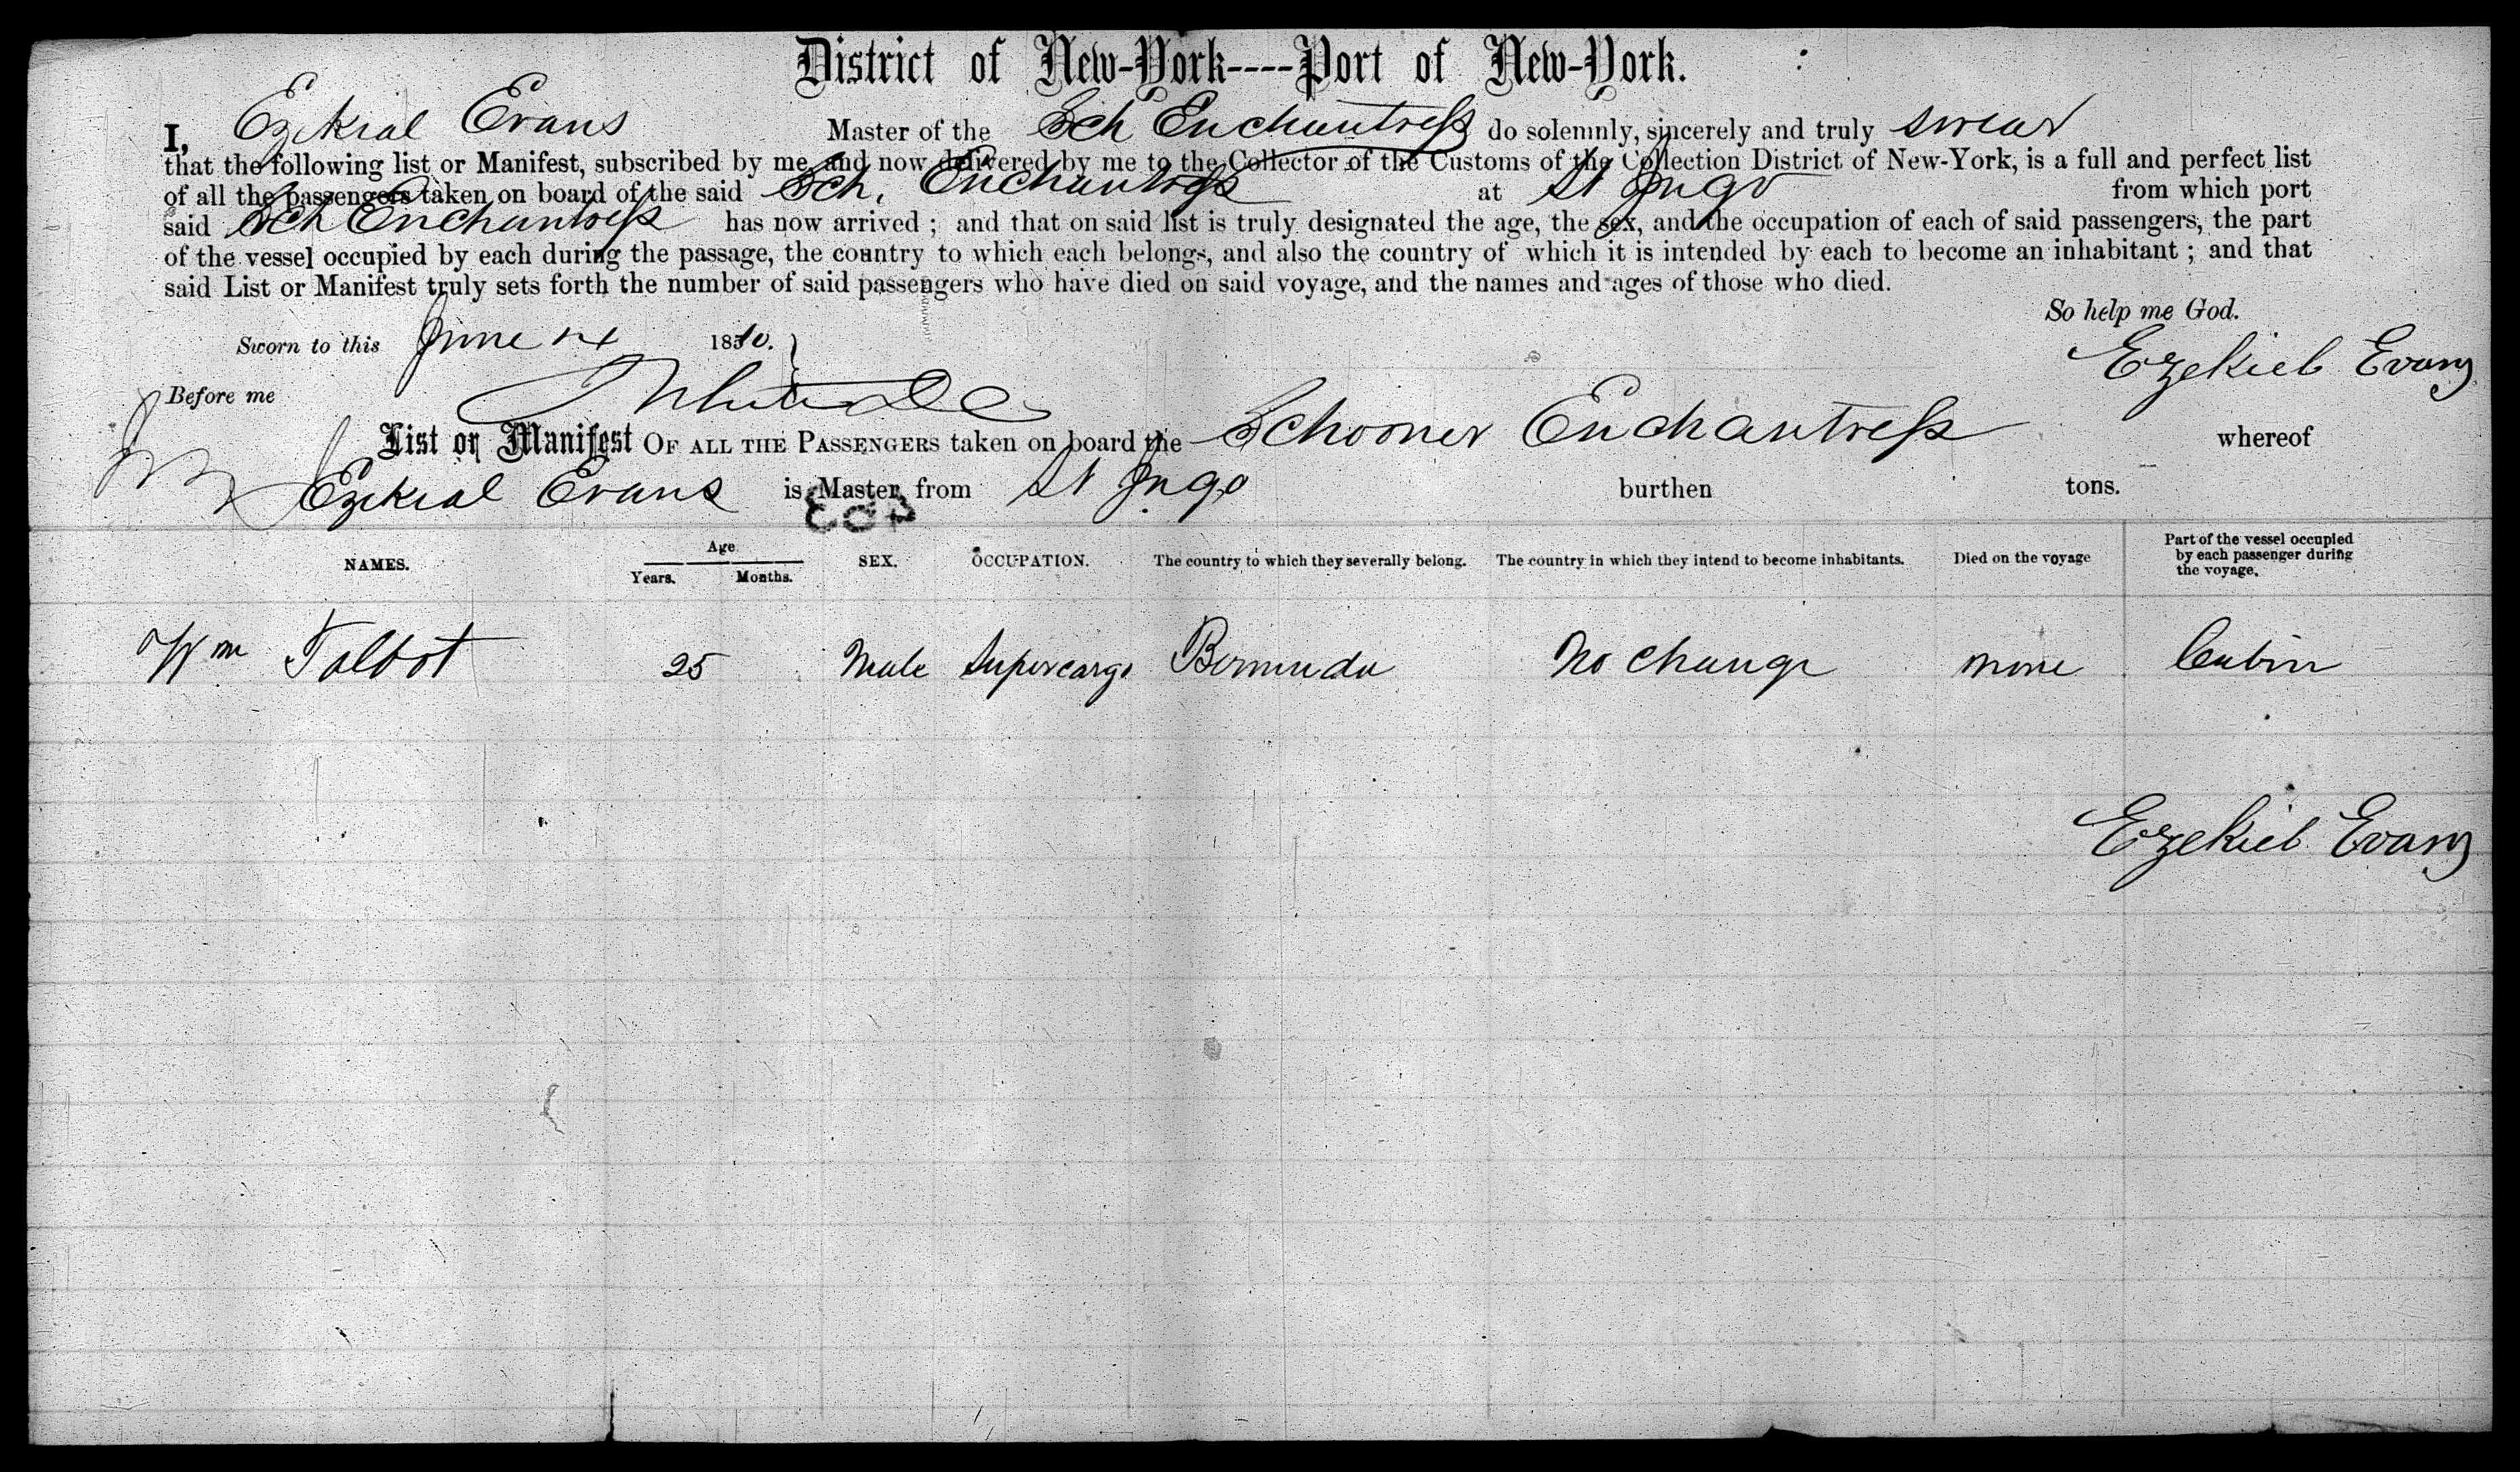 District of New-York----Port of New-York.
I, Ezikial Evans Master of the Sch Enchantress do solemnly, sincerely and truly swear
that the following list or Manifest, subscribed by me, and now delivered by me to the Collector of the Customs of the Collection District of New-York, is a full and perfect list
of all the passengers taken on board of the said Sch, Enchantress at St Jago from which port
said Sch Enchantress has now arrived ; and that on said list is truly designated the age, the sex, and the occupation of each of said passengers, the part
of the vessel occupied by each during the passage, the country to which each belongs, and also the country of which it is intended by each to become an inhabitant ; and that
said List or Manifest truly sets forth the number of said passengers who have died on said voyage, and the names and ages of those who died.
So help me God.
Sworn to this June 14 18
Ezekiel Evans
Before me
List or Manifest OF ALL THE PASSENGERS taken on board the Schooner Enchantress whereof
Ezikial Evans is Master, from St Jago burthen tons.
NAMES. Age. Years. Months. SEX. OCCUPATION. The country to which they severally belong. The country in which they intend to become inhabitants. Died on the voyage Part of the vessel occupied by each passenger during the voyage.
Wm Talbot 25 Male Supercargo Bermuda No change none Cabin
Ezekiel Evans